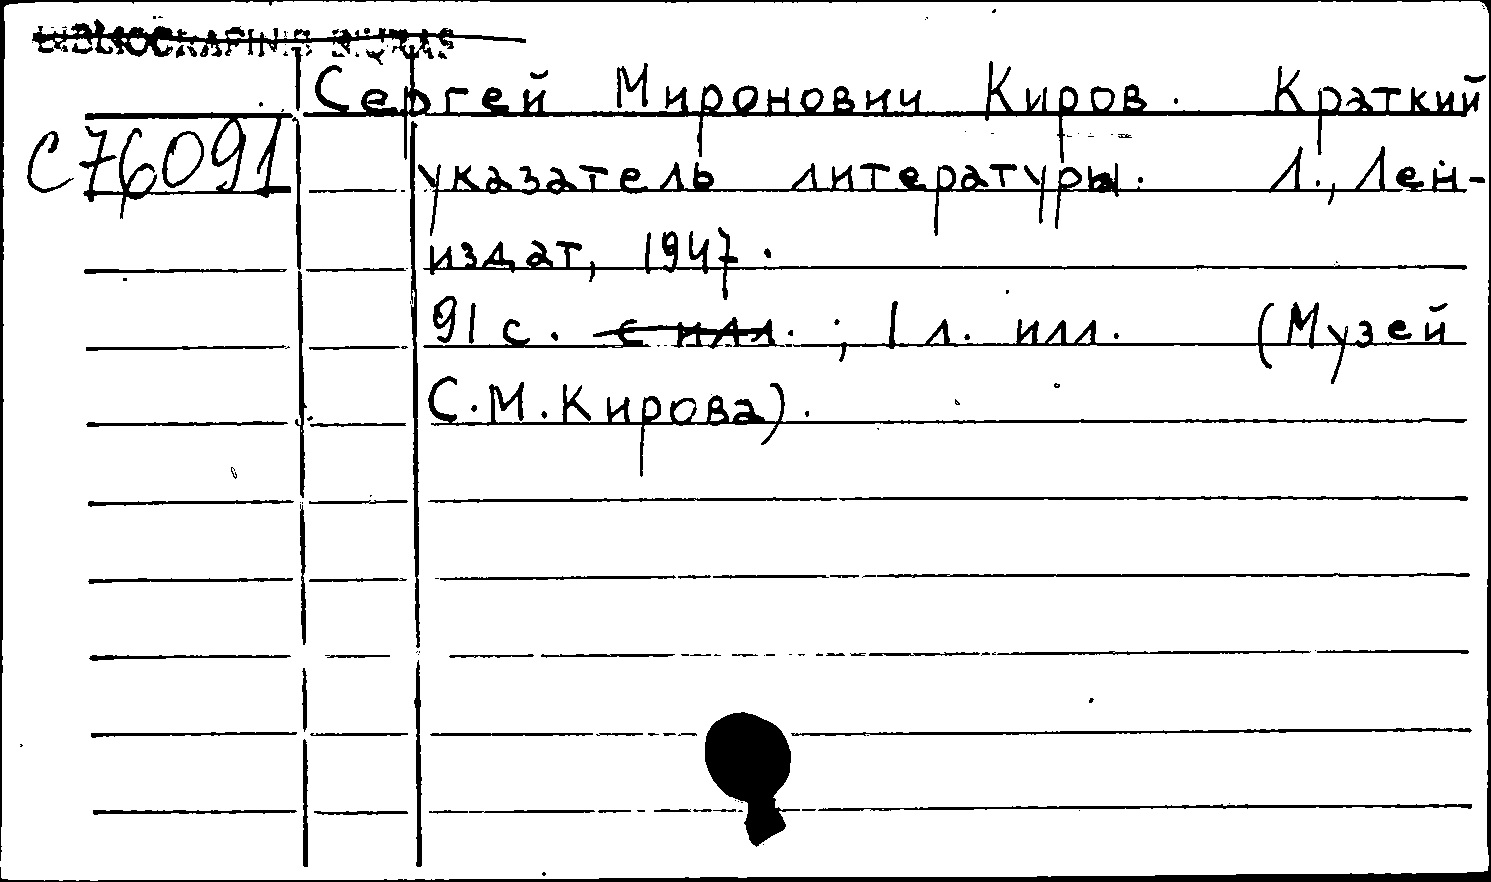 Сергей Миронович Киров. Краткий
С76091
указатель литературы. Л., Лен-
издат, 1947.
91 с. с илл. ; 1 л. илл. (Музей
С.М.Кирова).